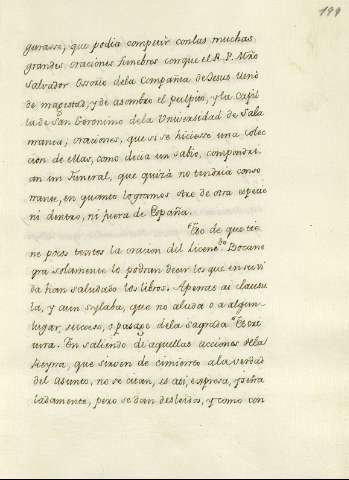 199
gurasse, que podia competir con las muchas
grandes oraciones funebres con que el R. P. Mro
Salvador Ossorio de la Compañia de Jesus llenó
de magestad, y de asombro el pulpito, y la Capi
lla de San Geronimo de la Universidad de Sala
manca; oraciones, que si se hiciesse una colec
cion de ellas, como decia un sabio, compondri
an un Funeral, que quizà no tendria conso
nante, en quanto logramos otro de otra especie
ni dentro, ni fuera de España.
Eso de que tie
ne pocos textos la oracion del Licendo Bocane
gra solamente lo podran decir los que en su vi
da han saludado los libros. Apenas ai clausu
la, y aun sylaba, que no aluda o a algun
lugar, sucesso, o passage de la Sagrada Escri
tura. En saliendo de aquellas acciones de la
Reyna, que sirven de cimiento a la verdad
del asunto, no se citan, es assi, expressa, y seña
ladamente, pero se dan desleidos, y como con